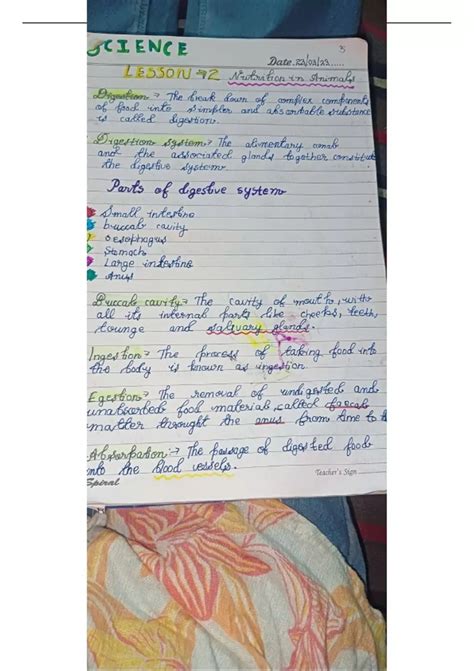 SCIENCE
3
Date 23/03/23
LESSON-2 Nutrition in Animals
Digestion → The break down of complex components
of food into simpler and absorbable substance
is called digestion.
Digestion system → The alimentary canal
and the associated glands together constitute
the digestive system
Parts of digestive system
Small intestine
buccal cavity
oesophagus
Stomach
Large intestine
Anus
Buccal cavity → The cavity of mouth, with
all its internal parts like cheeks, teeth,
tounge and salivary glands.
Ingestion → The process of taking food into
the body is known as ingestion.
Egestion → The removal of undigested and
food material, called faecal
matter throught the anus from time to
Absorpation :→ The passage of digested food
into the blood vessels.
Spiral
Teacher's Sign